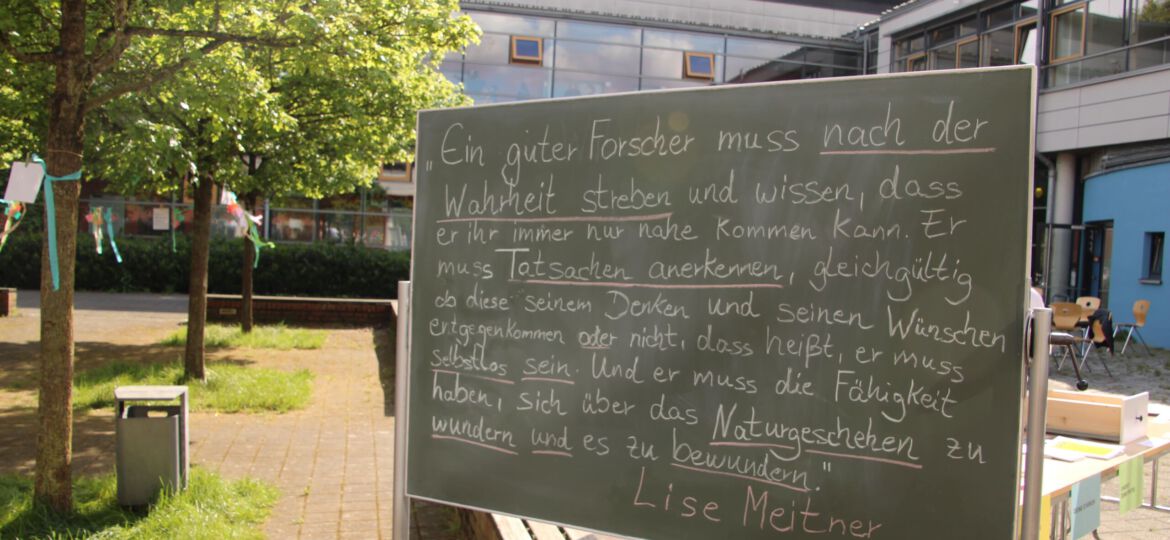 „Ein guter Forscher muss nach der
Wahrheit streben und wissen, dass
er ihr immer nur nahe kommen kann. Er
muss Tatsachen anerkennen, gleichgültig
ob diese seinem Denken und seinen Wünschen
entgegenkommen oder nicht, dass heißt, er muss
selbstlos sein. Und er muss die Fähigkeit
haben, sich über das Naturgeschehen zu
wundern und es zu bewundern."
Lise Meitner